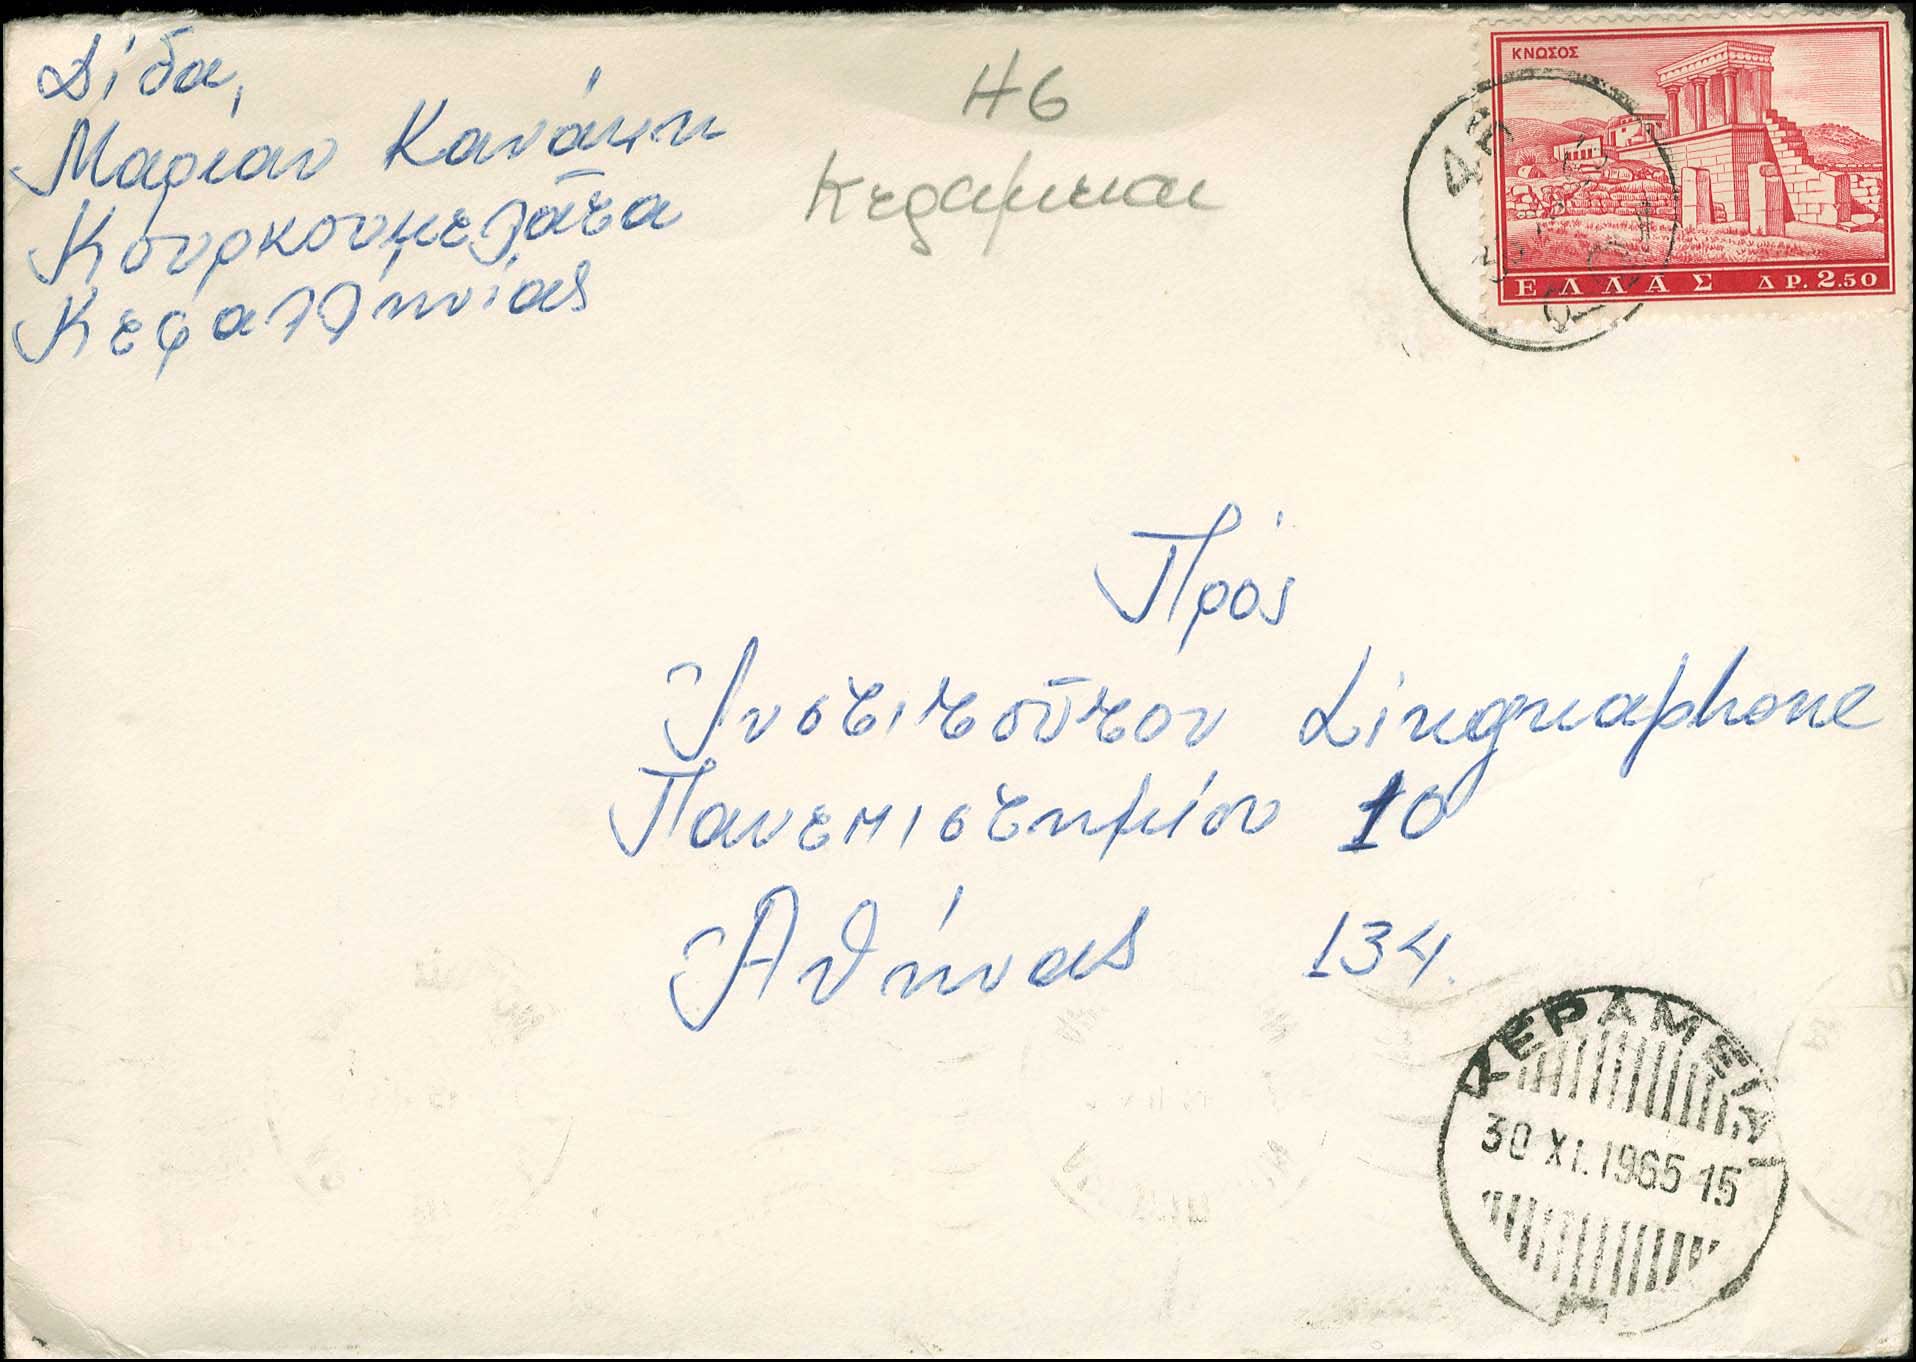 Δίδα,
Μαρίαν Κανάκη
Κουρκουμελᾶτα
Κεφαλληνίας
Η6
Κεραμειαι
ΚΝΩΣΟΣ
ΕΛΛΑΣ ΔΡ. 2.50
Πρός
Ἰνστιτοῦτον Linguaphone
Πανεπιστημίου 10
Ἀθήνας 134.
ΚΕΡΑΜΕΙΑΙ
30 XI. 1965 15